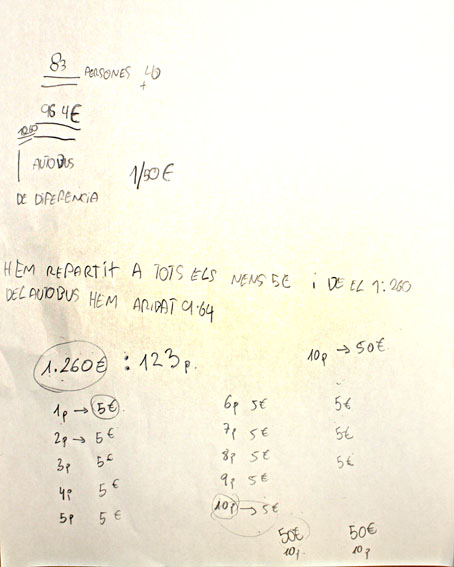 83 PERSONES 40
+
964€
1260
1 AUTOBUS 1/50€
DE DIFERENCIA
HEM REPARTIT A TOTS ELS NENS 5€ i DE EL 1.260
DEL AUTOBUS HEM ARIDAT 9.64
1.260€ : 123p. 10p → 50€
1p → 5€ 6p 5€ 5€
2p → 5€ 7p 5€ 5€
3p 5€ 8p 5€ 5€
4p 5€ 9p 5€
5p 5€ 10p → 5€
50€ 50€
10p 10p